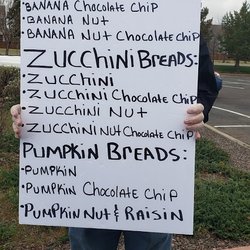 • BANANA Chocolate Chip
• BANANA NUT
• BANANA NUT Chocolate Chip
ZUCCHINI BREADS:
• ZUCCHINI
• ZUCCHINI Chocolate Chip
• ZUCCHINI NUT
• ZUCCHINI NUT Chocolate Chip
PUMPKIN BREADS:
• PUMPKIN
• PUMPKIN Chocolate Chip
• PUMPKIN NUT & RAISIN